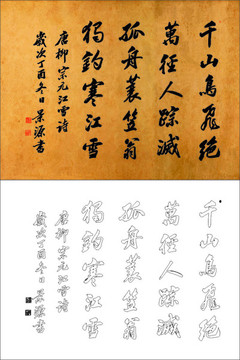 千山鸟飞绝
萬径人踪滅
孤舟蓑笠翁
獨钓寒江雪
唐柳宗元江雪詩
歲次丁酉冬日景源書
千山鸟飞绝
萬径人踪滅
孤舟蓑笠翁
獨钓寒江雪
唐柳宗元江雪詩
歲次丁酉冬日景源書